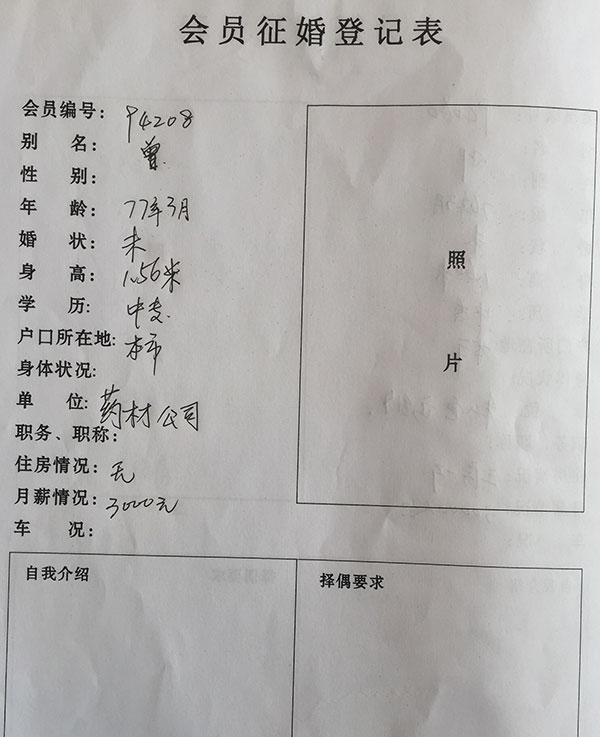 会员征婚登记表
会员编号: 94208
别 名: 曾
性 别:
年 龄: 77年3月
婚 状: 未
身 高: 1.56米
学 历: 中专
户口所在地: 本市
身体状况:
单 位: 药材公司
职务、职称:
住房情况: 无
月薪情况: 3000元
车 况:
照
片
自我介绍
择偶要求